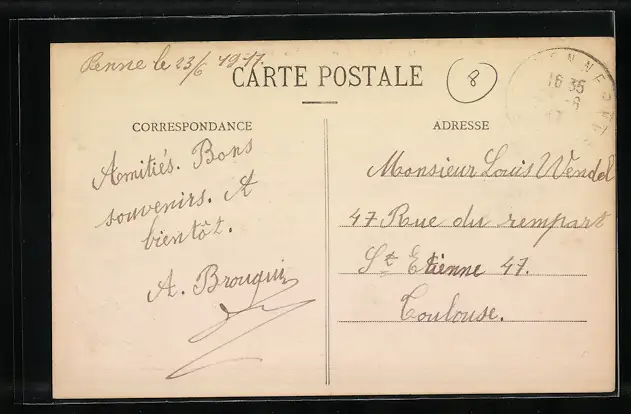 Penne le 23/6 1917.
CARTE POSTALE
8
PENNE
16 35
CORRESPONDANCE
ADRESSE
Amitiés. Bons
souvenirs. A
bientôt.
A. Brouqui
Monsieur Louis Wendel
47 Rue du rempart
St Etienne 47.
Toulouse.